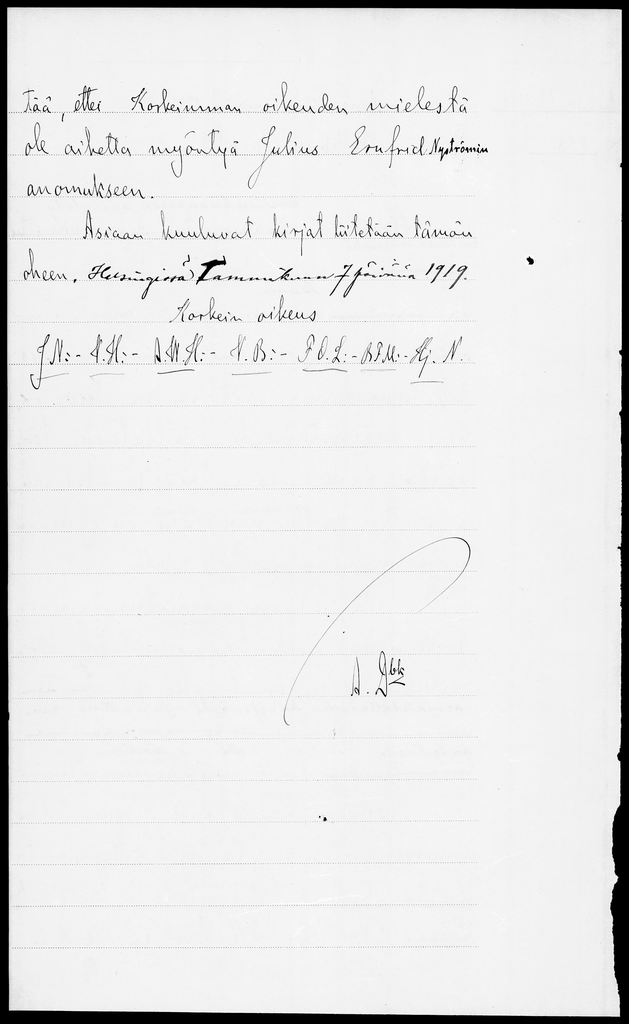 tää, ettei Korkeimman oikeuden mielestä
ole aihetta myöntyä Julius Ernfrid Nyströmin
anomukseen.
Asiaan kuuluvat kirjat liitetään tämän
oheen. Helsingissä, Tammikuun 7 päivänä 1919.
Korkein oikeus
J. N:- H. H:- A. W. H:- H. B:- F. O. L:- B F M:- Hj. N.
A. Gbk